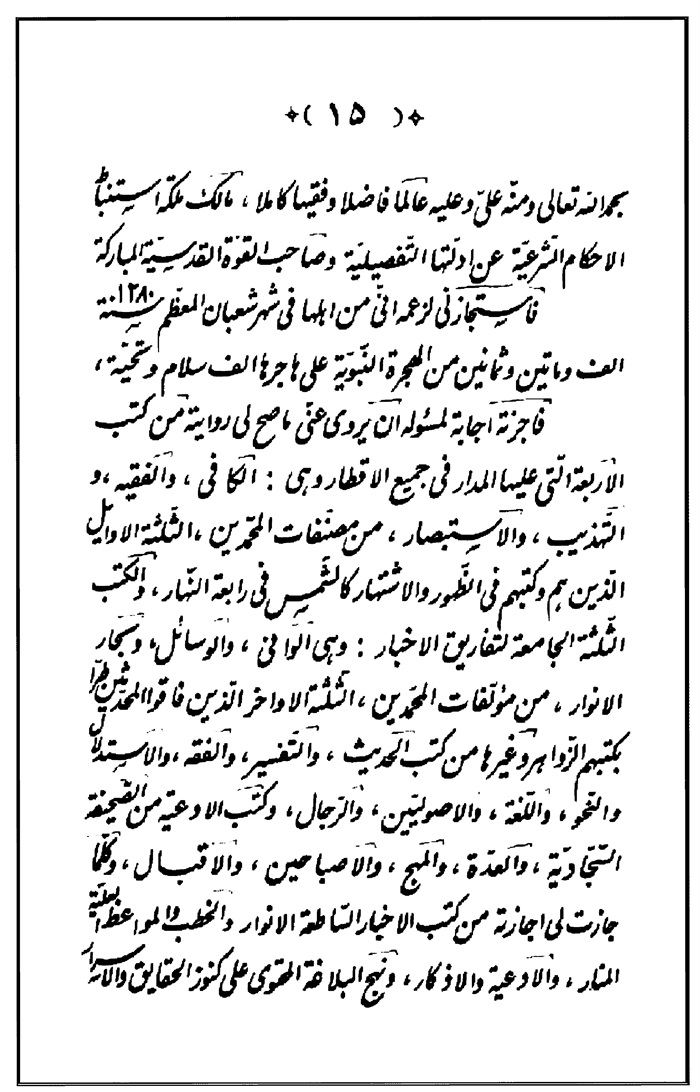 ( ۱۵ )
بحمد الله تعالی ومنّه علیّ وعلیه عالماً فاضلا وفقیها کاملا ، مالک ملکة استنباط
الاحکام الشرعیّة عن ادلّتها التّفصیلیّة وصاحب القوّة القدسیّة المبارکة
فاستجازنی لزعمه انّی من اهلها فی شهر شعبان المعظّم سنة ۱۲۸۰
الف وماتین وثمانین من الهجرة النّبویّة علی هاجرها الف سلام وتحیّة ،
فاجزته اجابة لمسئوله ان یروی عنّی ما صح لی روایته من کتب
الأربعة الّتی علیها المدار فی جمیع الاقطار وهی : الکافی ، والفقیه ، و
التّهذیب ، والاستبصار ، من مصنّفات المحمّدین ، الثّلثة الاوایل
الّذین هم وکتبهم فی الظّهور والاشتهار کالشّمس فی رابعة النّهار ، والکتب
الثّلثة الجامعة لتفاریق الاخبار : وهی الوافی ، والوسائل ، وبحار
الانوار ، من مؤلّفات المحمّدین ، الثّلثة الاواخر الّذین فاقوا المحدّثین طرّا
بکتبهم الزّواهر وغیرها من کتب الحدیث ، والتّفسیر ، والفقه ، والاستدلال
والنّحو ، واللّغة ، والاصولیّین ، والرّجال ، وکتب الادعیة من الصّحیفة
السّجّادیّة ، والعدّة ، والمهج ، والاصباحین ، والاقبال ، وکلّما
جازت لی اجازته من کتب الاخبار السّاطعة الانوار والخطب والمواعظ العلیة
المنار ، والادعیة والاذکار ، ونهج البلاغة المحتوی علی کنوز الحقایق والاسرار